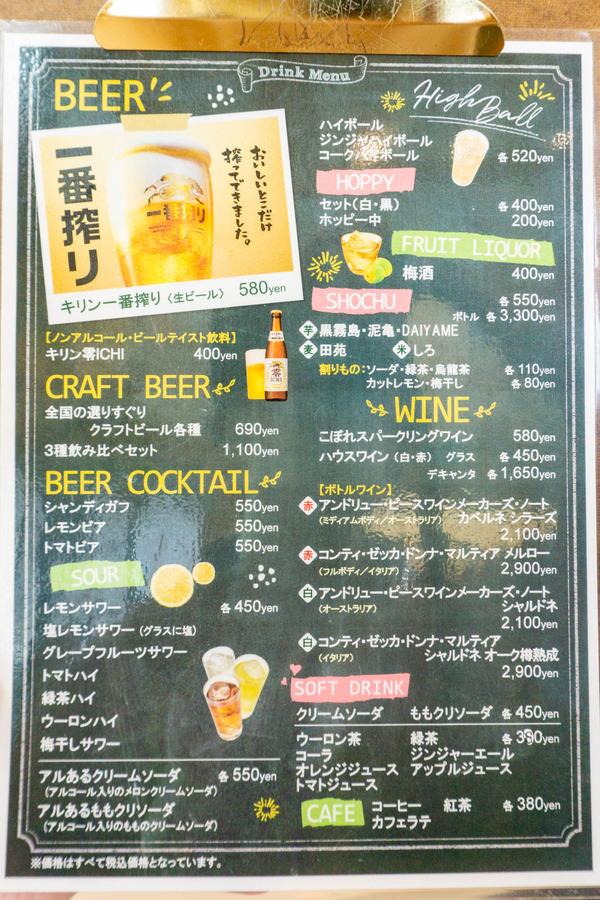 Drink Menu
BEER
一番搾り
おいしいとこだけ
搾ってできました。
一番搾り
キリン一番搾り〈生ビール〉 580yen
【ノンアルコール・ビールテイスト飲料】
キリン零ICHI 400yen
零
ICHI
CRAFT BEER
全国の選りすぐり
クラフトビール各種 690yen
3種飲み比べセット 1,100yen
BEER COCKTAIL
シャンディガフ 550yen
レモンビア 550yen
トマトビア 550yen
SOUR
レモンサワー 各450yen
塩レモンサワー(グラスに塩)
グレープフルーツサワー
トマトハイ
緑茶ハイ
ウーロンハイ
梅干しサワー
アルあるクリームソーダ 各550yen
(アルコール入りのメロンクリームソーダ)
アルあるももクリソーダ
(アルコール入りのもものクリームソーダ)
High Ball
ハイボール
ジンジャーハイボール
コークハイボール 各520yen
HOPPY
セット(白・黒) 各400yen
ホッピー中 200yen
FRUIT LIQUOR
梅酒 400yen
SHOCHU
各550yen
ボトル 各3,300yen
芋 黒霧島・泥亀・DAIYAME
麦 田苑 米 しろ
割りもの:ソーダ・緑茶・烏龍茶 各110yen
カットレモン・梅干し 各80yen
WINE
こぼれスパークリングワイン 580yen
ハウスワイン(白・赤) グラス 各450yen
デキャンタ 各1,650yen
【ボトルワイン】
赤 アンドリュー・ピースワインメーカーズ・ノート
(ミディアムボディ/オーストラリア) カベルネ シラーズ
2,100yen
赤 コンティ・ゼッカ・ドンナ・マルティア メルロー
(フルボディ/イタリア) 2,900yen
白 アンドリュー・ピースワインメーカーズ・ノート
(オーストラリア) シャルドネ
2,100yen
白 コンティ・ゼッカ・ドンナ・マルティア
(イタリア) シャルドネ オーク樽熟成
2,900yen
SOFT DRINK
クリームソーダ ももクリソーダ 各450yen
ウーロン茶 緑茶 各
コーラ ジンジャーエール
オレンジジュース アップルジュース
トマトジュース
CAFE
コーヒー 紅茶 各380yen
カフェラテ
※価格はすべて税込価格となっています。